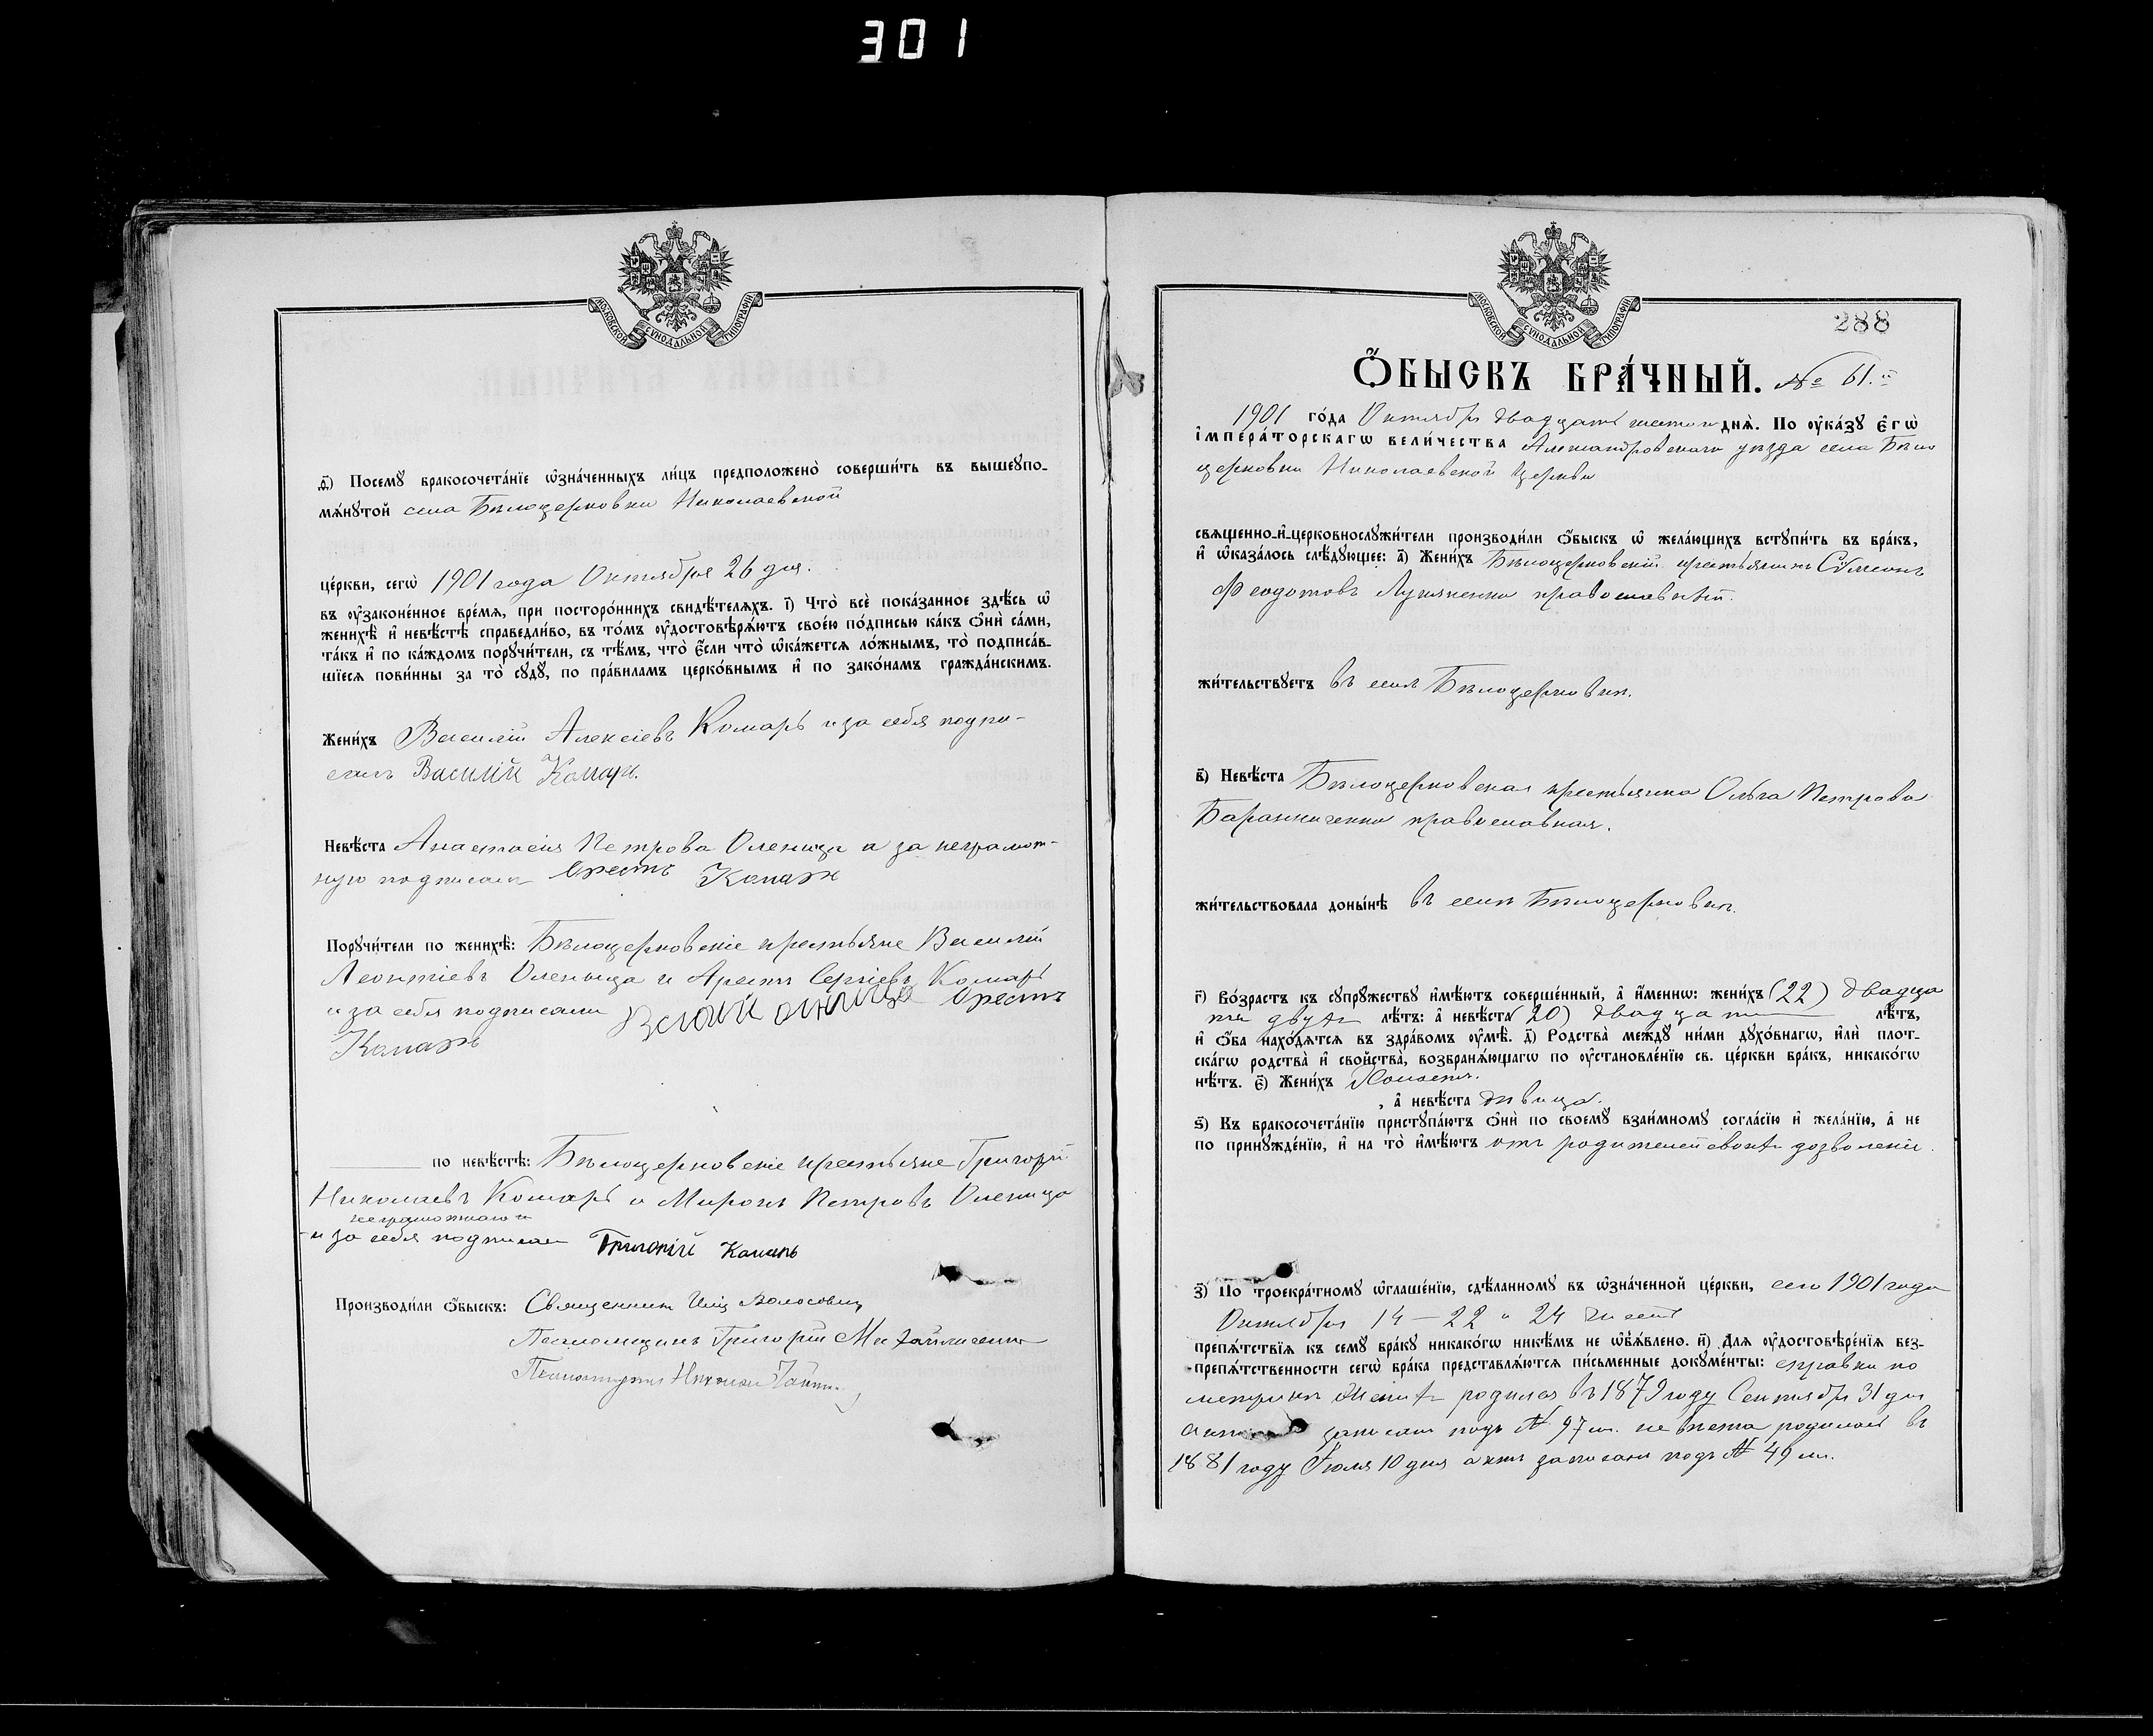 301
МОСКОВСКОЙ СѴНОДАЛЬНОЙ ТИПОГРАФІИ
д҃і) Посемꙋ̀ бракосочета́нїе ѡ҆зна́ченныхъ ли́цъ предположено̀ соверши́ть въ вышеꙋпо-
мѧ́нꙋтой села Бѣлоцерковки Николаевской
це́ркви, сегѡ̀ 1901 года Октября 26 дня.
въ ᲂу҆зако́ненное вре́мѧ, при посторо́ннихъ свидѣ́телѧхъ. і҃) Что̀ всѐ пока́занное здѣ́сь ѡ҆
женихѣ̀ и҆ невѣ́стѣ справедли́во, въ то́мъ ᲂу҆достовѣрѧ́ютъ свое́ю по́дписью ка́къ ѻ҆нѝ са́ми,
та́къ и҆ по ка́ждомъ порꙋчи́тели, съ тѣ́мъ, что̀ є҆́сли что̀ ѡ҆ка́жетсѧ ло́жнымъ, то̀ подписа́в-
шїесѧ пови́нны за то̀ сꙋдꙋ̀, по пра́виламъ церко́внымъ и҆ по зако́намъ гражда́нскимъ.
Жени́хъ Василій Алексіевъ Комаръ и за себя подпи-
салъ Василій Комаръ.
Невѣ́ста Анастасія Петрова Оленица а за неграмот-
ную подписалъ Орестъ Комаръ
Порꙋчи́тели по женихѣ̀: Бѣлоцерковскіе крестьяне Василій
Леонтіевъ Оленица и Арестъ Сергіевъ Комаръ
и за себя подписали Орестъ
Комаръ
по невѣ́стѣ: Бѣлоцерковскіе крестьяне Григорій
Николаевъ Комаръ и Миронъ Петровъ Оленица
неграмотнаго и
и за себя подписалъ Григорій Комаръ
Производи́ли ѻ҆́быскъ: Священникъ Волосовичъ
Псаломщикъ Григорій Михайличенко
Псаломщикъ Николай
МОСКОВСКОЙ СѴНОДАЛЬНОЙ ТИПОГРАФІИ
288
Ѻ҆́БЫСКЪ БРА́ЧНЫЙ. № 61.й
1901 го́да Октября двадцать шестого днѧ̀. По ᲂу҆ка́зꙋ є҆гѡ̀
і҆мпера́торскагѡ вели́чества Александровскаго уѣзда села Бѣло
церковки Николаевской Церкви
свѧщенно-и҆-церковнослꙋжи́тели производи́ли ѻ҆́быскъ ѡ҆ жела́ющихъ встꙋпи́ть въ бра́къ,
и҆ ѡ҆каза́лось слѣ́дꙋющее: а҃) Жени́хъ Бѣлоцерковскій крестьянинъ Сѵмеонъ
Феодотовъ Лукяненко православный.
жи́тельствꙋетъ въ селѣ Бѣлоцерковкѣ.
в҃) Невѣ́ста Бѣлоцерковская крестьянка Ольга Петрова
Баранниченко православная.
жи́тельствовала доны́нѣ въ селѣ Бѣлоцерковкѣ.
г҃) Во́зрастъ къ сꙋпрꙋ́жествꙋ и҆мѣ́ютъ соверше́нный, а҆ и҆́менно: жени́хъ (22) двадца
ти двухъ лѣ́тъ: а҆ невѣ́ста (20) двадцати лѣ́тъ,
и҆ ѻ҆́ба нахо́дѧтсѧ въ здра́вомъ ᲂу҆мѣ̀. д҃) Родства̀ междꙋ̀ ни́ми дꙋхо́внагѡ, и҆лѝ плот-
ска́гѡ родства̀ и҆ сво́йства, возбранѧ́ющагѡ по ᲂу҆становле́нїю св. це́ркви бра́къ, никако́гѡ
нѣ́тъ. є҃) Жени́хъ Холостъ.
, а҆ невѣ́ста дѣвица.
ѕ҃) Къ бракосочета́нїю пристꙋпа́ютъ ѻ҆нѝ по своемꙋ̀ взаи́мномꙋ согла́сїю и҆ жела́нїю, а҆ не
по принꙋжде́нїю, и҆ на то̀ и҆мѣ́ютъ отъ родителей своихъ дозволеніе.
з҃) По троекра́тномꙋ ѡ҆глаше́нїю, сдѣ́ланномꙋ въ ѡ҆зна́ченной це́ркви, сего 1901 года
Октября 14 — 22 и 24 чиселъ
препѧ́тствїѧ къ семꙋ̀ бра́кꙋ никако́гѡ никѣ́мъ не ѡ҆б̾ѧ́влено. и҃) Длѧ ᲂу҆достовѣре́нїѧ без-
препѧ́тственности сегѡ̀ бра́ка представлѧ́ютсѧ пи́сьменные докꙋме́нты: справки по
метрикѣ Женихъ родился въ 1879 году Сентября 31 дня
актъ записанъ подъ № 97 м. невѣста родилась въ
1881 году Іюля 10 дня актъ записанъ подъ № 49 м.